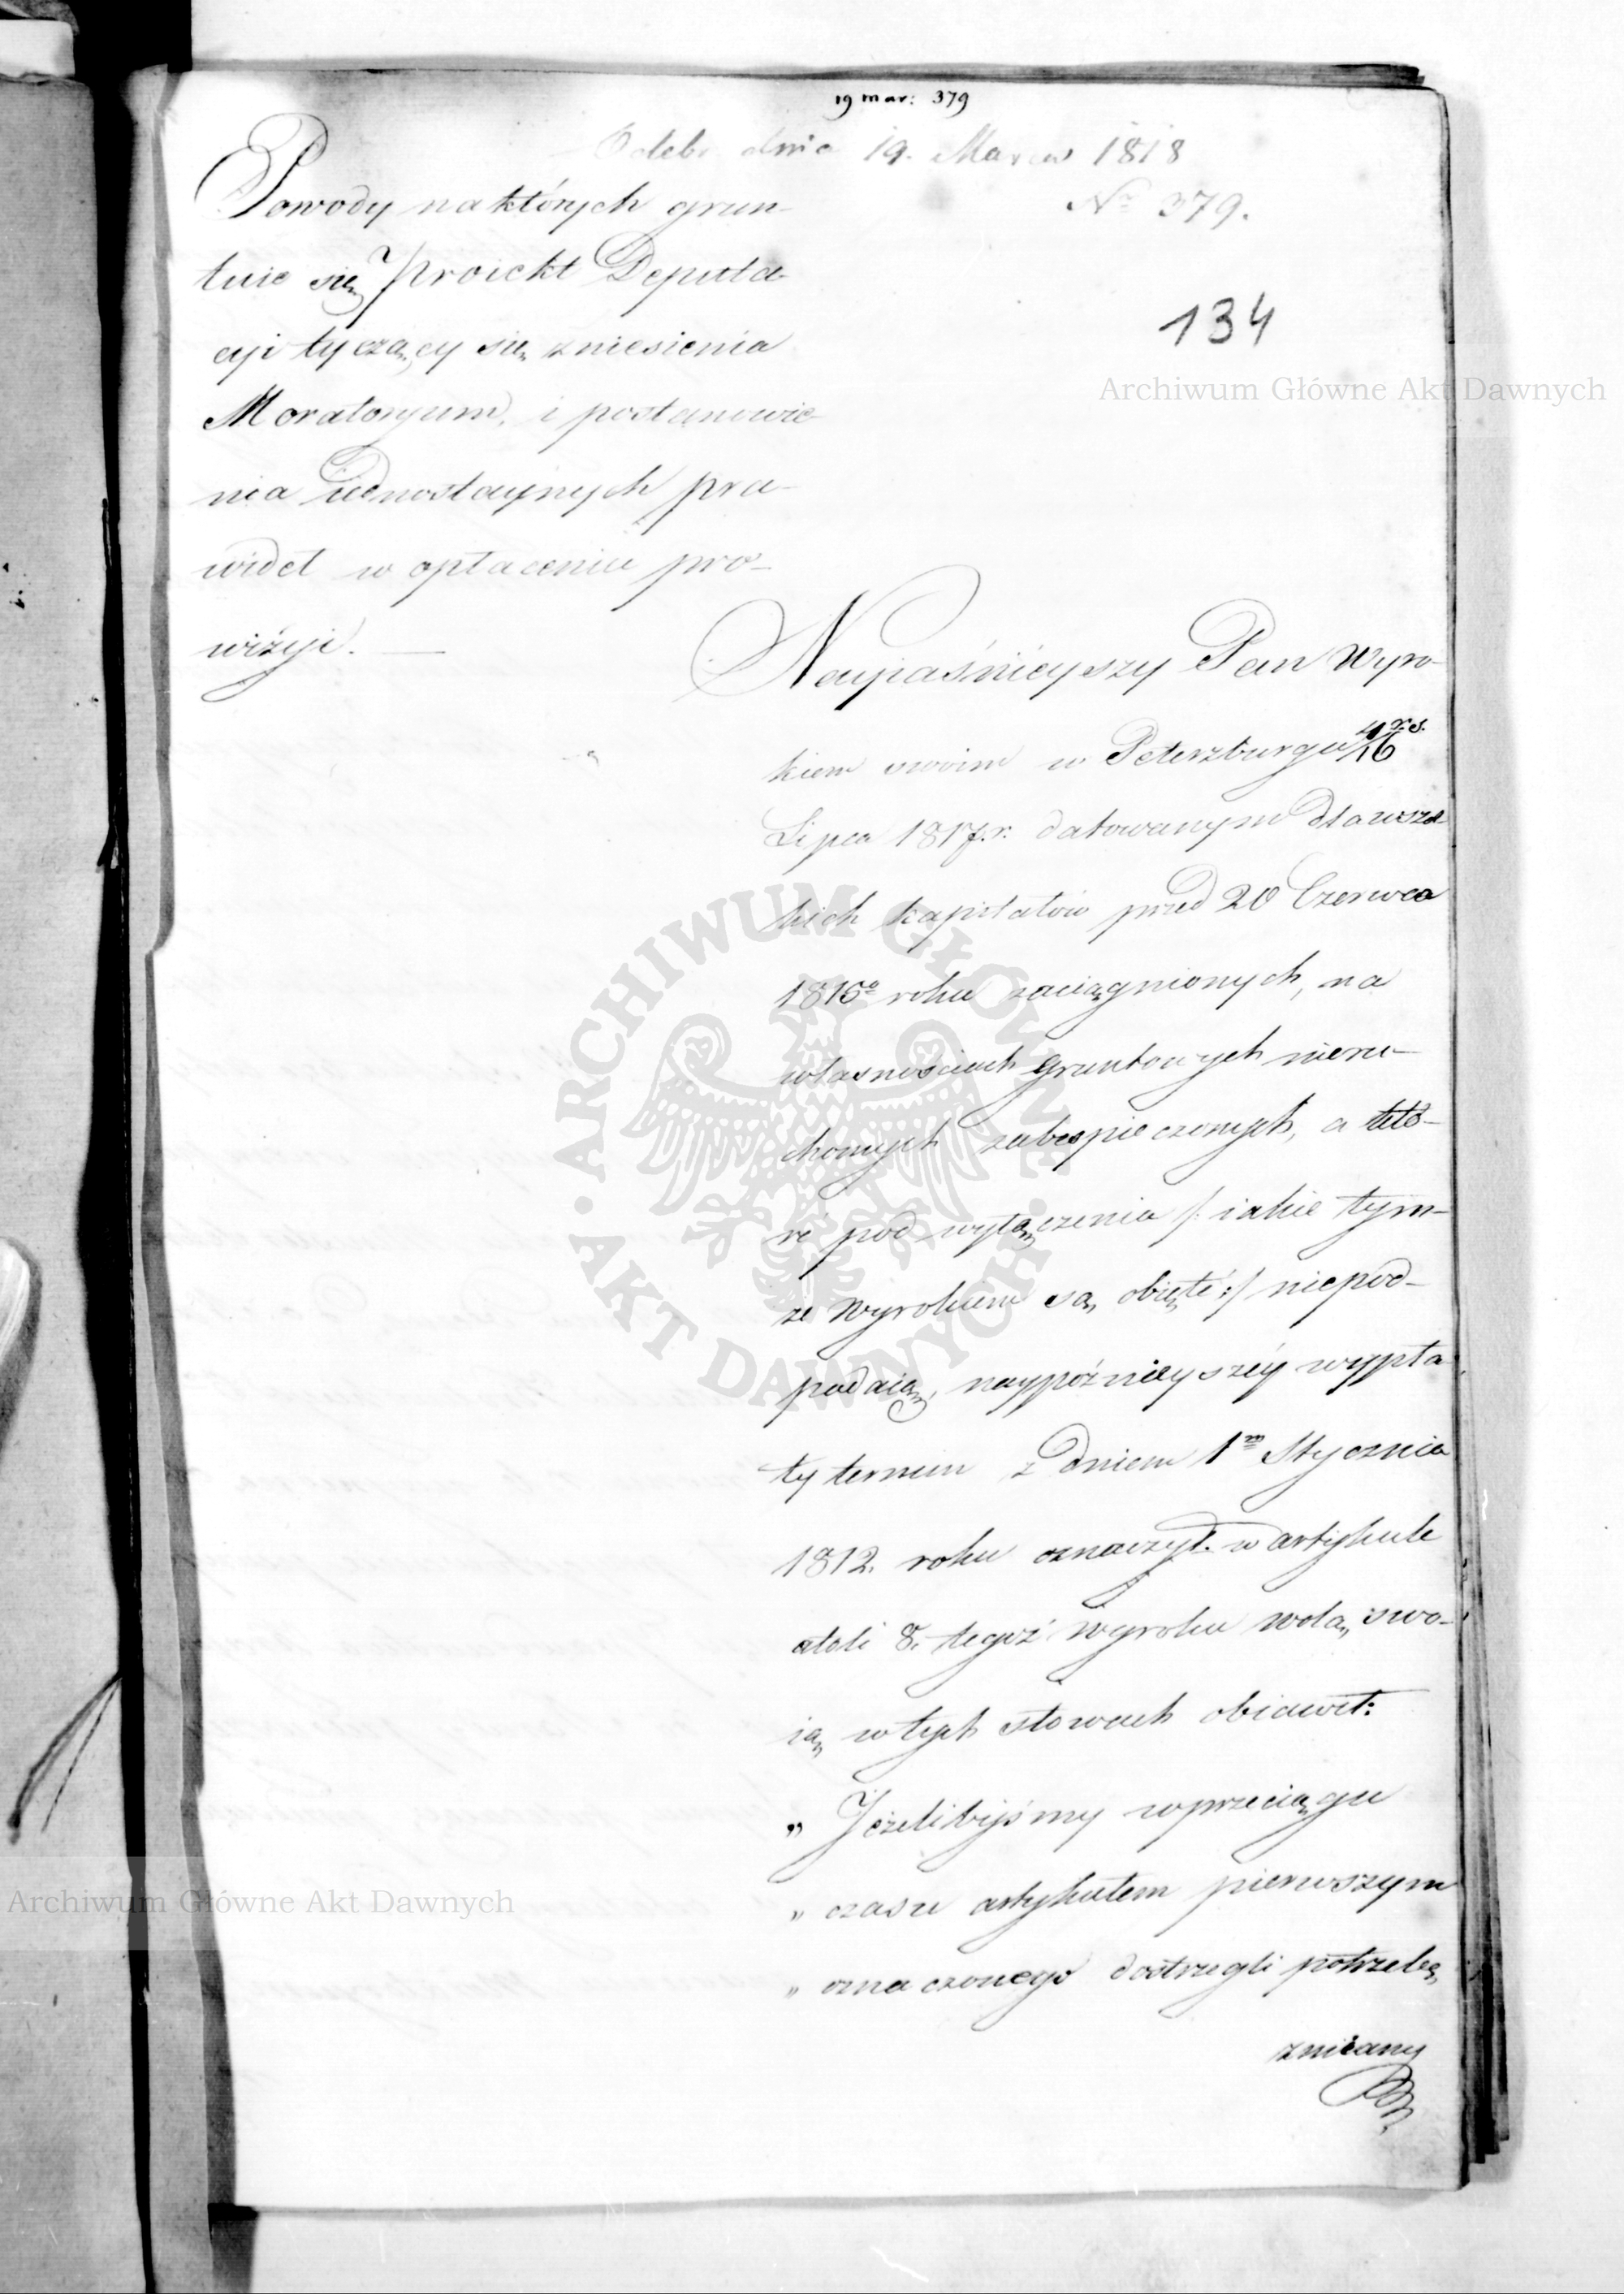 19 mar: 379
Odebr. dnia 19. Marca 1818
Nº 379.
134
Powody na których grun-
tuie się Proiekt Deputa-
cyi tyczący się zniesienia
Moratoryum, i postanowie-
nia iednostaynych pra-
wideł w opłaceniu pro-
wizyi. —
Nayiaśnieyszy Pan Wyro-
kiem swoim w Peterzburgu
Lipca 1817. r. datowanym dla wszel-
kich kapitałów przed 20 Czerwca
1815º roku zaciągnionych, na
własnościach gruntowych nieru-
chomych zabespieczonych, a któ-
ré pod wyłączenia /: iakie tym-
że Wyrokiem są obięté :/ niepod-
padaią, naypóźnieyszéy wypła-
ty termin z dniem 1m Stycznia
1812. roku oznaczył. w artykule
atoli 8. tegoż Wyroku wolą swo-
ią w tych słowach obiawił:
„ Jeżelibyśmy w przeciągu
„ czasu artykułem pierwszym
„ oznaczonego dostrzegli potrzebę
zmiany
Archiwum Główne Akt Dawnych
ARCHIWUM GŁÓWNE AKT DAWNYCH
Archiwum Główne Akt Dawnych